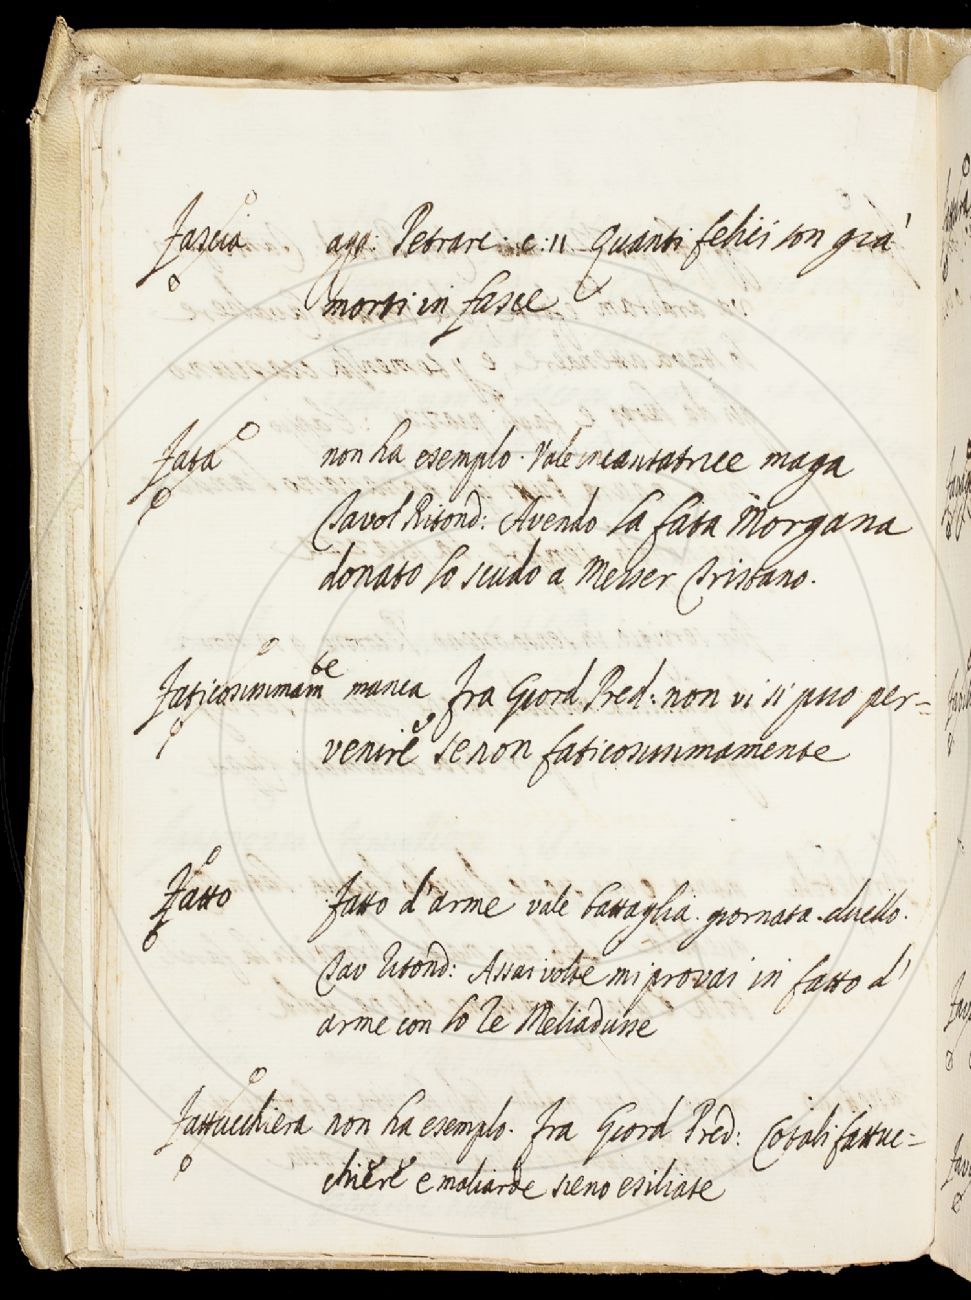 Fascia agg. Petrarc. c. 11 Quanti felici son già
morti in fasce
Fata non ha esemplo. Vale incantatrice maga
Tavol Ritond: Avendo la fata Morgana
donato lo scudo a Messer Tristano.
Faticosissimamte manca Fra Giord Pred: non vi si puo per=
venire se non faticosissimamente
Fatto Fatto d'arme vale battaglia. giornata. duello.
Tav Ritond: Assai volte mi provai in fatto d'
arme con lo Re Meliadusse
Fattucchiera non ha esemplo. Fra Giord Pred: Cotali fattuc=
chiere e maliarde sieno esiliate